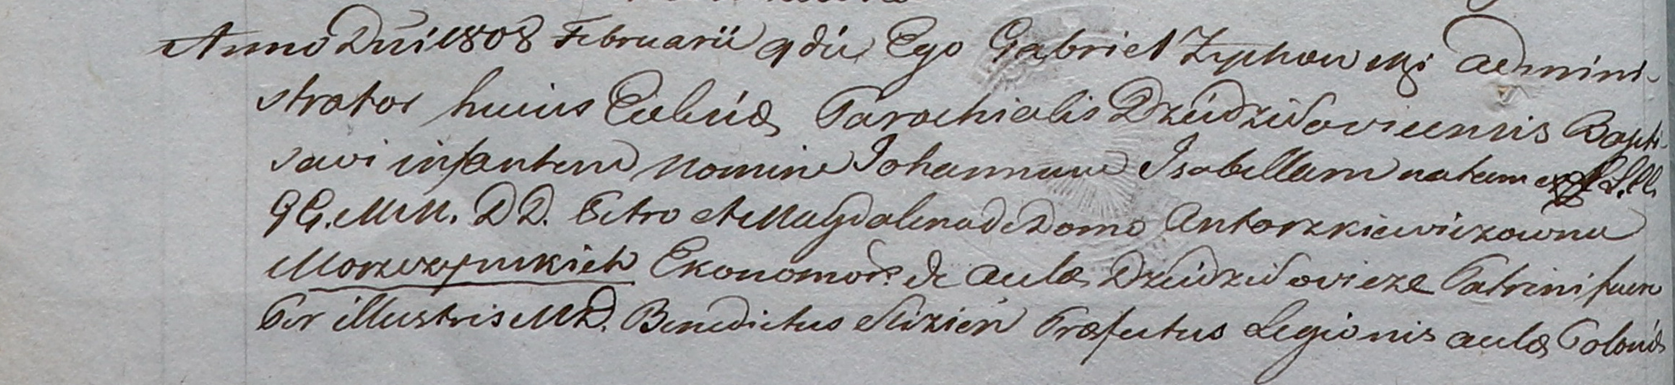 Anno Dni 1808 Februarii 9 die Ego Gabriel Zyphowski admini-
strator huius Eccliæ Parochialis Dziedziłoviecensis Bapti-
savi infantem nomine Johannam Isabellam natam ex LL.
GG. MM. DD. Petro et Magdalena de Domo Antoszkiewiczowna
Ekonomor: de aula Dziedziłovicze Patrini fuere
Per illustris MD. Benedictus Slizień Præfectus Legionis aulæ Poloniæ